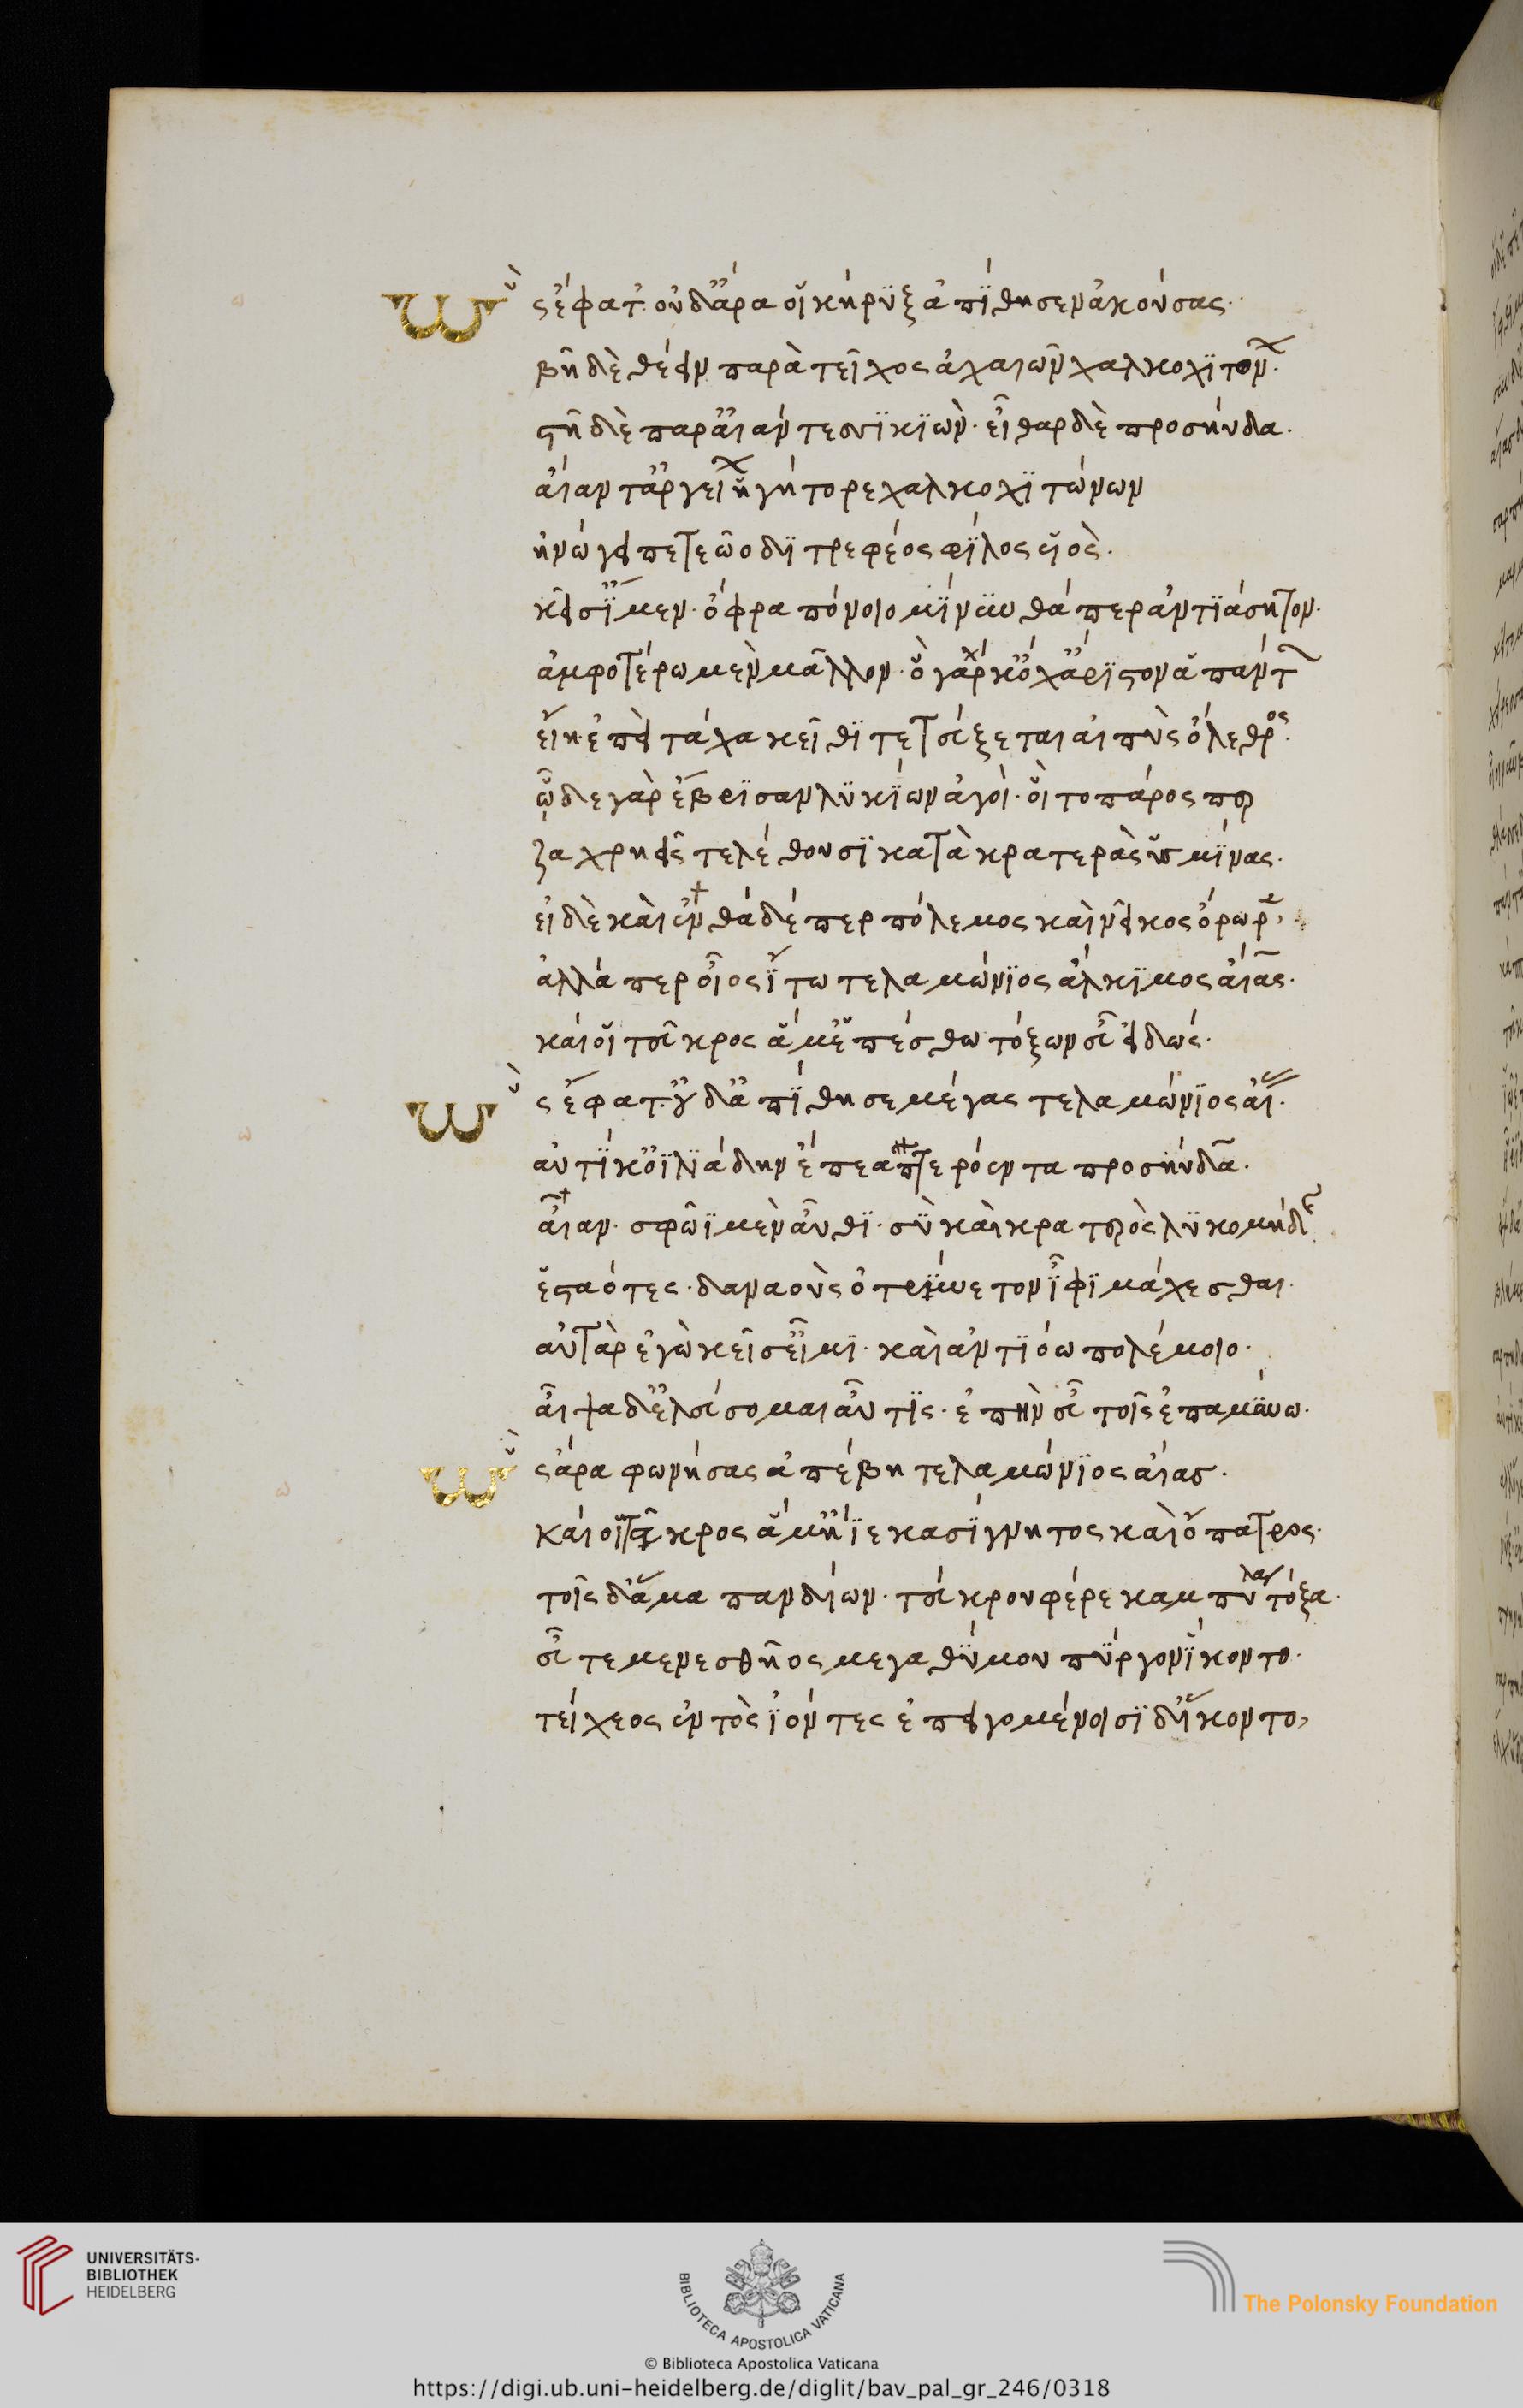 ὣς ἔφατ· οὐδ' ἄρα οἱ κῆρυξ ἀπίθησεν ἀκούσας·
βῆ δὲ θέειν παρὰ τεῖχος ἀχαιῶν χαλκοχιτών·
στῆ δὲ παρ' αἰάντεσσι κιών· εἶθαρ δὲ προσηύδα.
αἴαντ' ἀργείων ἡγήτορε χαλκοχιτώνων
ἠνώγει πετεῶο διτρεφέος φίλος υἱός.
κεῖσ' ἴμεν· ὄφρα πόνοιο μίνυνθά περ ἀντιάσητον.
ἀμφοτέρω μὲν μᾶλλον· ὃ γάρ κ' ὄχ' ἄριστον ἁπάντ
εἴη· ἐπεὶ τάχα κεῖθι τετεύξεται αἰπὺς ὄλεθρος.
ὧδε γὰρ ἔβρισαν λυκίων ἀγοί· οἳ τὸ πάρος περ
ζαχρηεῖς τελέθουσι κατὰ κρατερὰς ὑσμίνας.
εἰ δὲ καὶ ἐνθάδε περ πόλεμος καὶ νεῖκος ὄρωρε,
ἀλλά περ οἶος ἴτω τελαμώνιος ἄλκιμος αἴας.
καί οἱ τεῦκρος ἅμ' ἑπέσθω τόξων εὖ εἰδώς.
ὣς ἔφατ· οὐδ' ἀπίθησε μέγας τελαμώνιος αἴ.
αὐτίκ' ὀϊλιάδην ἔπεα πτερόεντα προσηύδα.
αἶαν· σφῶϊ μὲν αὖθι· σὺ καὶ κρατερὸς λυκομήδης
ἑσταότες· δαναοὺς ὀτρύνετον ἶφι μάχεσθαι.
αὐτὰρ ἐγὼ κεῖσ' εἶμι· καὶ ἀντιόω πολέμοιο.
αἶψα δ' ἐλεύσομαι αὖτις· ἐπὴν εὖ τοῖς ἐπαμύνω.
ὣς ἄρα φωνήσας ἀπέβη τελαμώνιος αἴας.
καί οἱ τεῦκρος ἅμ' ἤϊε κασίγνητος καὶ ὄπατρος.
τοῖς δ' ἅμα πανδίων· τεύκρου φέρε καμπύλα τόξα.
εὖτε μενεσθῆος μεγαθύμου πύργον ἵκοντο.
τείχεος ἐντὸς ἰόντες ἐπειγομένοισι δ' ἵκοντο,
UNIVERSITÄTS-
BIBLIOTHEK
HEIDELBERG
BIBLIOTECA APOSTOLICA VATICANA
The Polonsky Foundation
© Biblioteca Apostolica Vaticana
https://digi.ub.uni-heidelberg.de/diglit/bav_pal_gr_246/0318